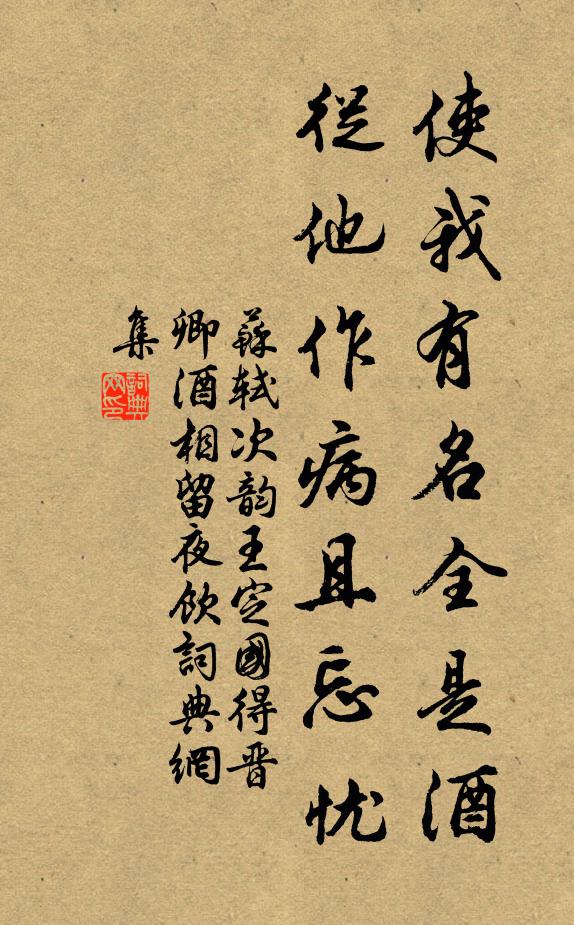 使我有名全是酒
從他作病且忘忧
蘇軾次韵王定國得晋
卿酒相留夜飲詞典網
集
詞典網印